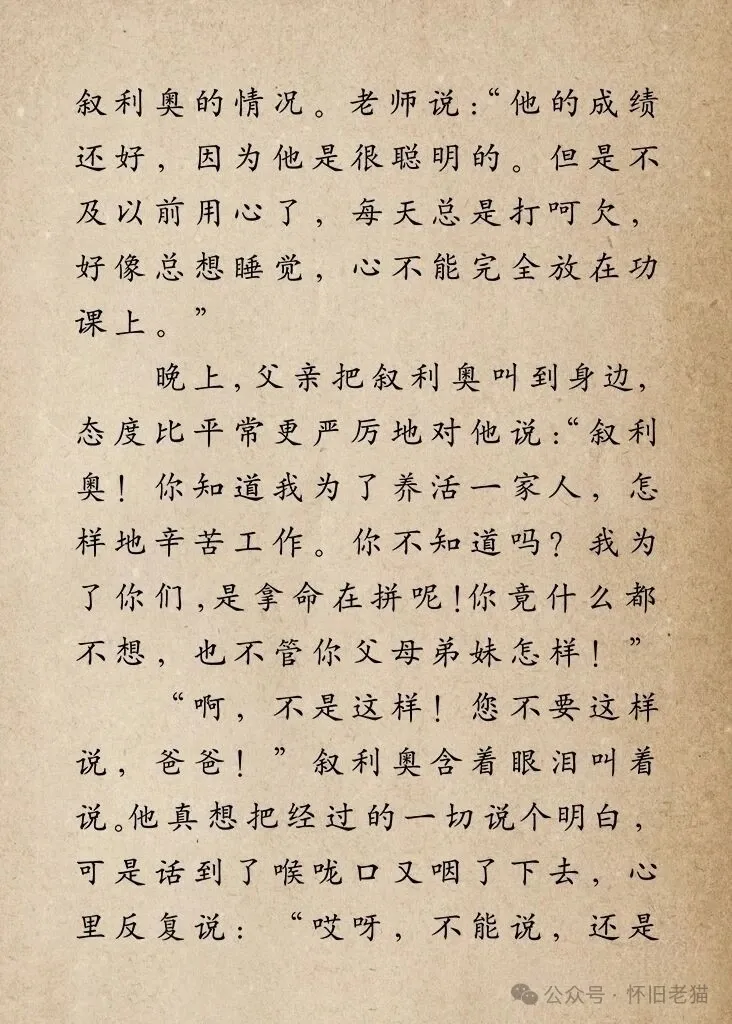 叙利奥的情况。老师说：“他的成绩
还好，因为他是很聪明的。但是不
及以前用心了，每天总是打呵欠，
好像总想睡觉，心不能完全放在功
课上。”
晚上，父亲把叙利奥叫到身边，
态度比平常更严厉地对他说：“叙利
奥！你知道我为了养活一家人，怎
样地辛苦工作。你不知道吗？我为
了你们，是拿命在拼呢！你竟什么都
不想，也不管你父母弟妹怎样！”
“啊，不是这样！您不要这样
说，爸爸！”叙利奥含着眼泪叫着
说。他真想把经过的一切说个明白，
可是话到了喉咙口又咽了下去，心
里反复说：“哎呀，不能说，还是
公众号·怀旧老猫